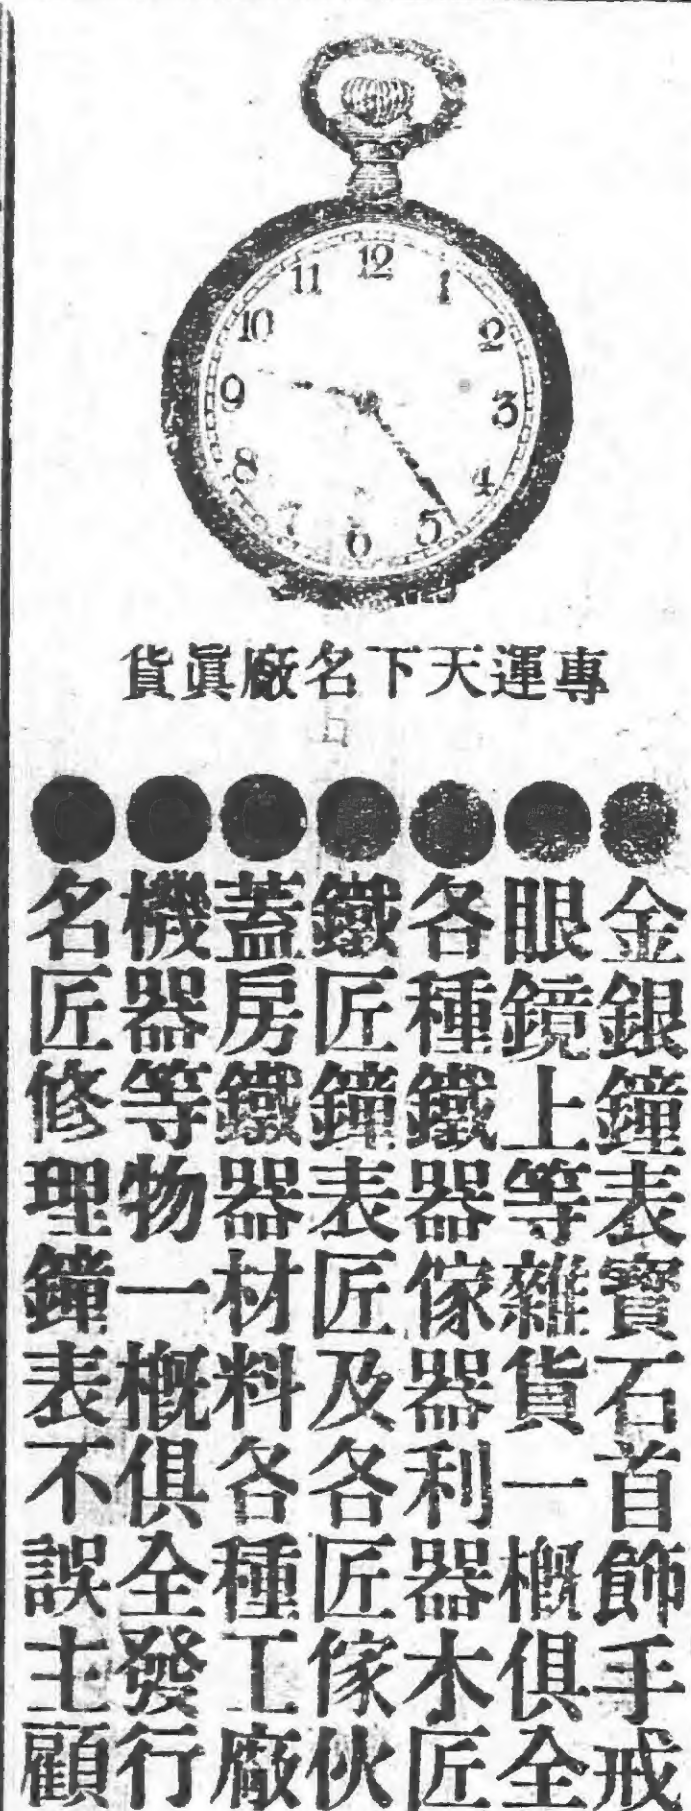 12
1
2
3
4
5
6
7
8
9
10
11
專運天下名廠眞貨
金銀鐘表寶石首飾手戒
眼鏡上等雜貨一概俱全
各種鐵器傢器利器木匠
鐵匠鐘表匠及各匠傢伙
蓋房鐵器材料各種工廠
機器等物一概俱全發行
名匠修理鐘表不誤主顧